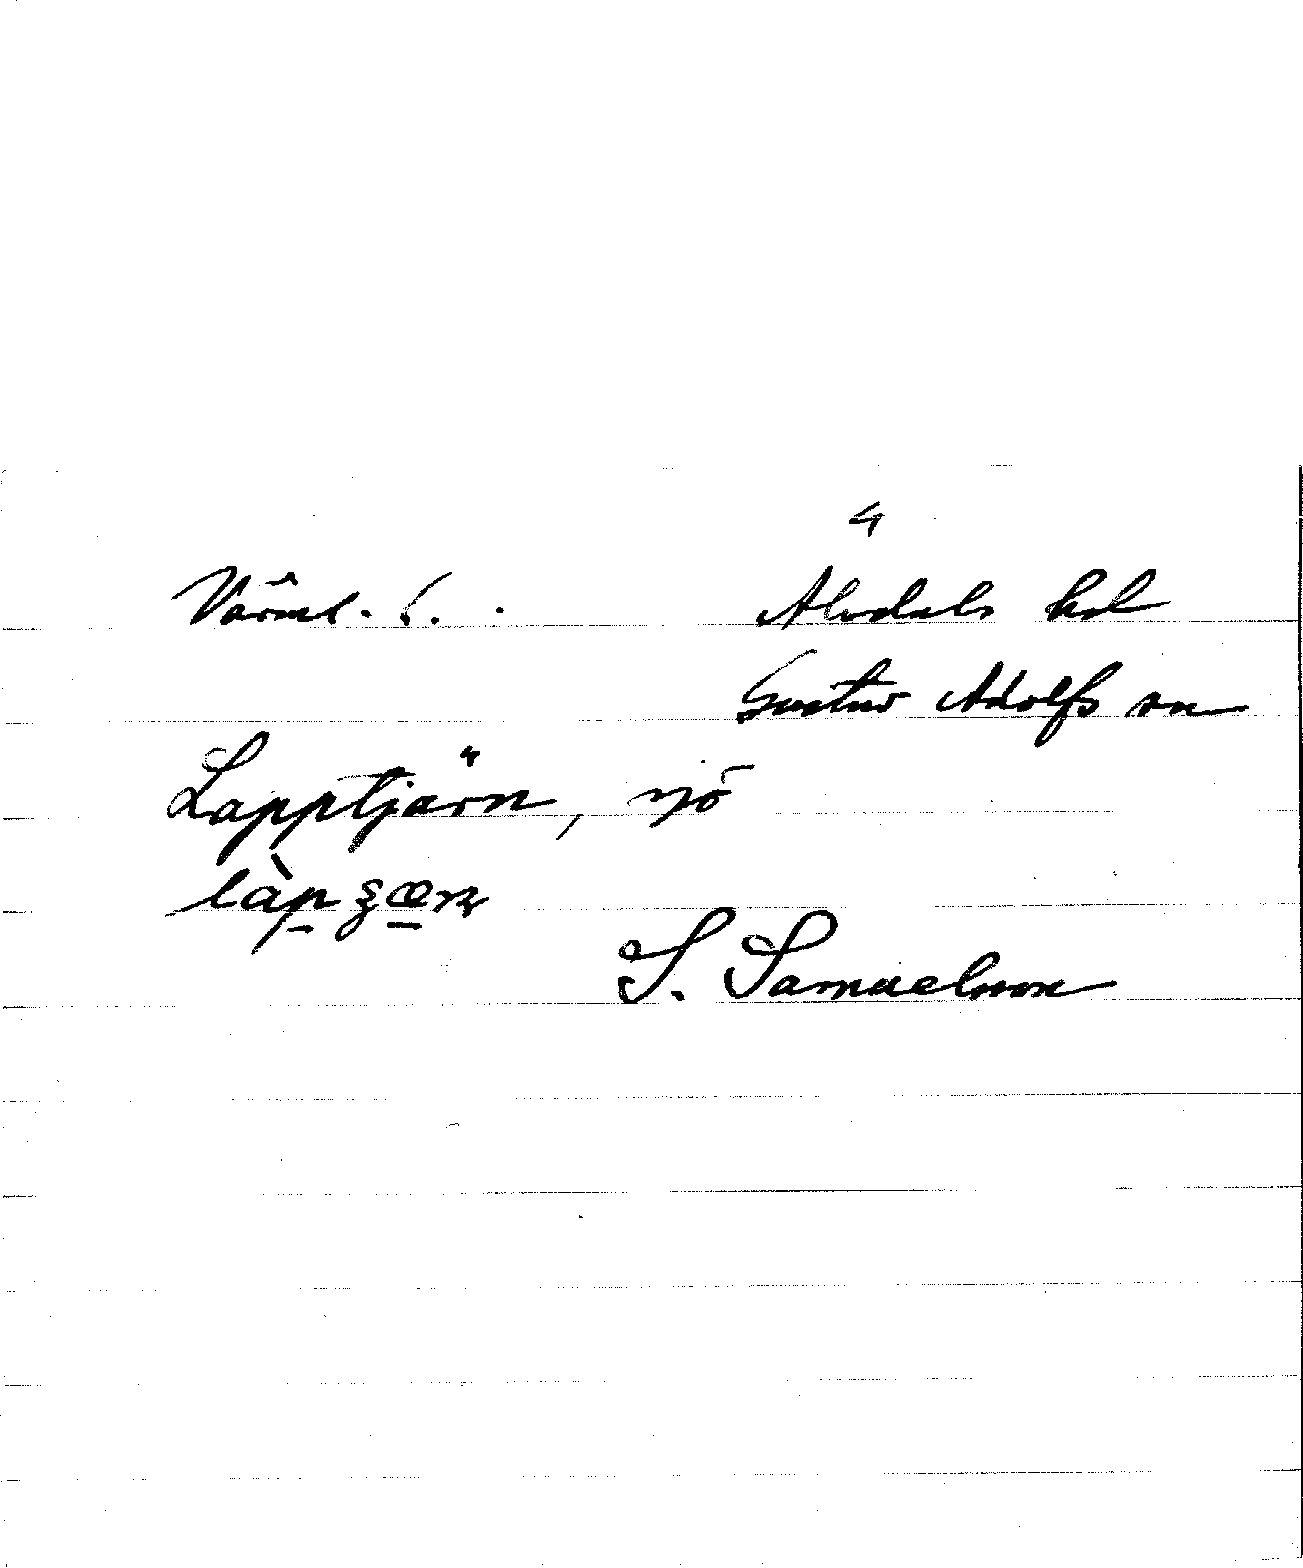 Värml. l.
Älvdals hd
Gustav Adolfs sn
Lapptjärn, sjö
S. Samuelsson